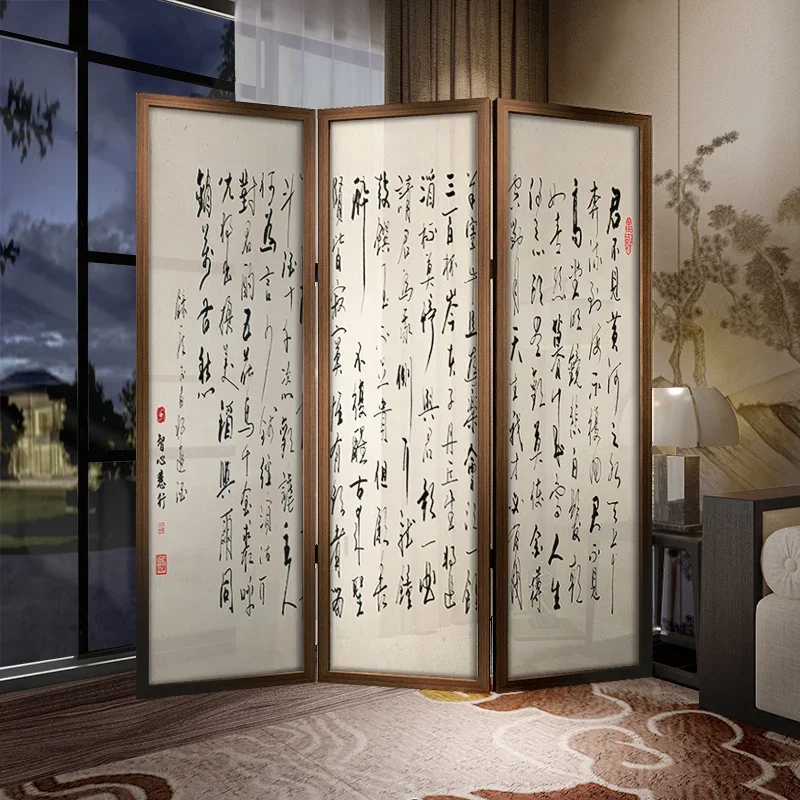 君不見黄河之水天上来
奔流到海不復回君不見
高堂明鏡悲白髮朝
如青絲暮成雪人生
得意須盡歡莫使金樽
空對月天生我材必有用
羊宰牛且為樂會須一飲
三百杯岑夫子丹丘生將進
酒杯莫停與君歌一曲
請君為我側耳聽鐘
鼓饌玉不足貴但願長
醉不願醒古來聖
賢皆寂寞惟有飲者留
斗酒十千恣歡謔主人
何為言少錢徑須沽取
對君酌五花馬千金裘呼
兒將出換美酒與爾同
銷萬古愁
錄唐李白將進酒
智心慧行